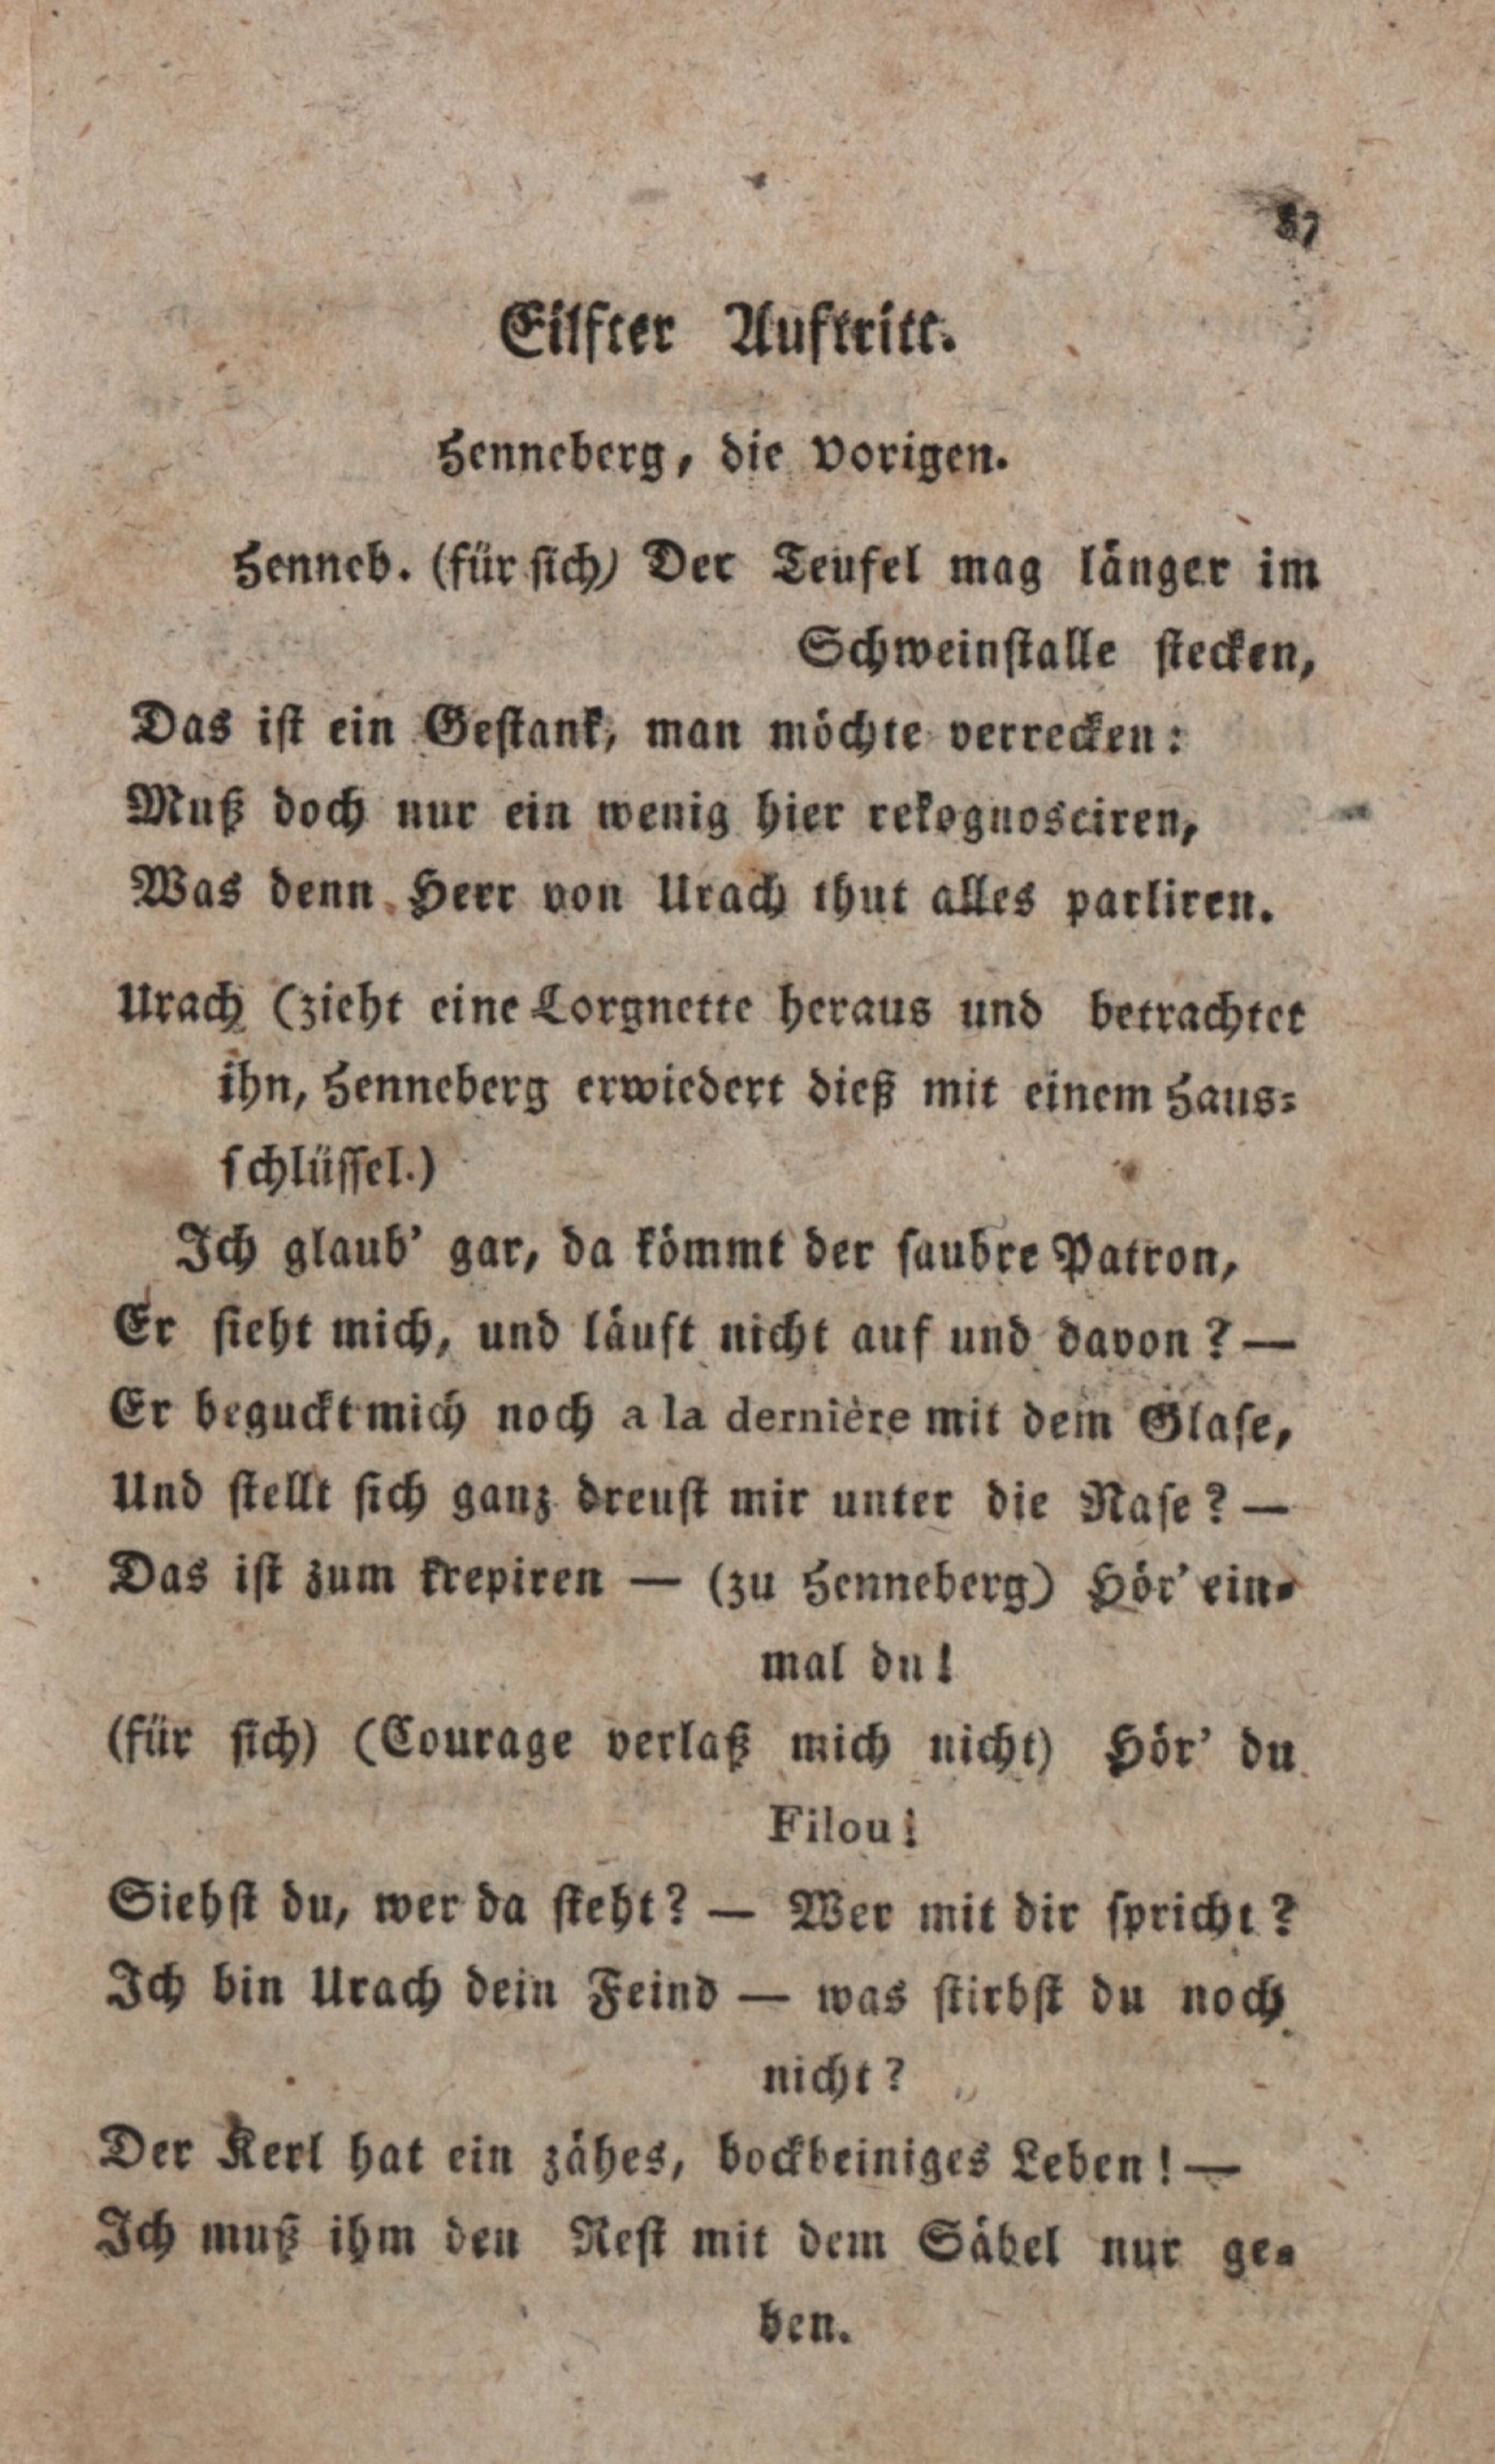 Eilfter Auftritt.
Henneberg, die Vorigen.
Henneb. (für sich) Der Teufel mag länger im
Schweinstalle stecken,
Das ist ein Gestank, man möchte verrecken:
Muß doch nur ein wenig hier rekognosciren,
Was denn Herr von Urach thut alles parliren.
Urach (zieht eine Lorgnette heraus und betrachtet
ihn, Henneberg erwiedert dieß mit einem Haus-
schlüssel.)
Ich glaub' gar, da kömmt der saubre Patron,
Er sieht mich, und läuft nicht auf und davon? —
Er beguckt mich noch a la dernière mit dem Glase,
Und stellt sich ganz dreust mir unter die Nase? —
Das ist zum krepiren — (zu Henneberg) Hör' ein-
mal du!
(für sich) (Courage verlaß mich nicht) Hör' du
Filou!
Siehst du, wer da steht? — Wer mit dir spricht?
Ich bin Urach dein Feind — was stirbst du noch
nicht?
Der Kerl hat ein zähes, bockbeiniges Leben! —
Ich muß ihm den Rest mit dem Säbel nur ge-
ben.